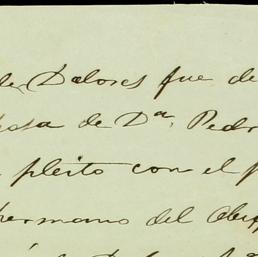 de Dolores fue de
de Dª. Pedr
pleito con el p
hermano del Obisp